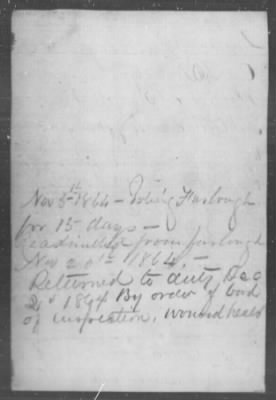 Nov 5th 1864 - Furlough
for 15 days -
readmitted from furlough
Nov 20th 1864 -
Returned to duty Dec
2d 1864 By order of bord
of inspection, wound heald